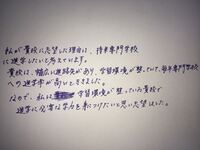 私が貴校に志望した理由は、将来専門学校
に進学したいと考えています。
貴校は、幅広い進路先があり、学習環境が整っていて、毎年専門学校
への進学率が高いとききました。
なので、私は学習環境が整っている貴校で
進学に必要な学力を身につけたいと思い志望しました。